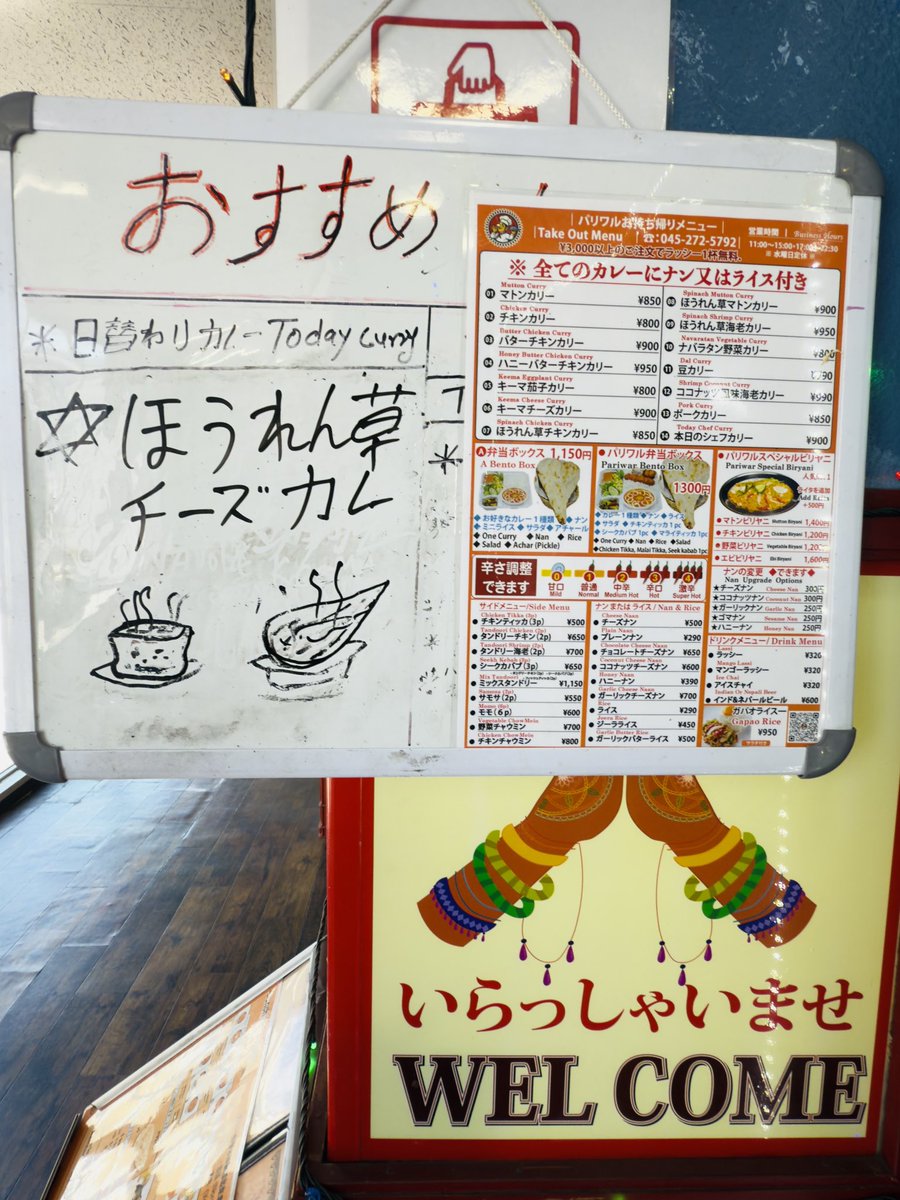 おすすめ
＊日替わりカレー Today Curry
ほうれん草
チーズカレ
パリワルお持ち帰りメニュー
Take Out Menu
☎:045-272-5792
営業時間
Business Hours
※ 水曜日定休 ※
¥3,000以上のご注文でラッシー1杯無料.
※ 全てのカレーにナン又はライス付き
Mutton Curry
01 マトンカリー ¥850
Chicken Curry
02 チキンカリー ¥800
Butter Chicken Curry
03 バターチキンカリー ¥900
Honey Butter Chicken Curry
04 ハニーバターチキンカリー ¥950
Keema Eggplant Curry
05 キーマ茄子カリー ¥800
Keema Cheese Curry
06 キーマチーズカリー ¥900
Spinach Chicken Curry
07 ほうれん草チキンカリー ¥850
Spinach Mutton Curry
08 ほうれん草マトンカリー ¥900
Spinach Shrimp Curry
09 ほうれん草海老カリー ¥950
Navaratan Vegetable Curry
10 ナバラタン野菜カリー ¥800
Dal Curry
11 豆カリー
Shrimp Coconut Curry
12 ココナッツ風味海老カリー
Pork Curry
13 ポークカリー ¥850
Today Chef Curry
14 本日のシェフカリー ¥900
A 弁当ボックス 1,150円
A Bento Box
◆お好きなカレー1種類 ◆ナン
◆ミニライス ◆サラダ ◆アチャール
◆One Curry ◆Nan ◆Rice
◆Salad ◆Achar (Pickle)
●パリワル弁当ボックス
Pariwar Bento Box
1300円
◆カレー1種類 ◆ナン ◆ライス
◆サラダ ◆チキンティッカ1pc
◆シークカバブ1pc ◆マライティッカ1pc
◆One Curry ◆Nan ◆Rice ◆Salad
◆Chicken Tikka, Malai Tikka, Seek kabab 1pc
●パリワルスペシャルビリヤニ
Pariwar Special Biryani
ライタを追加
+500円
●マトンビリヤニ Mutton Biryani 1,400円
●チキンビリヤニ Chicken Biryani 1,200円
●野菜ビリヤニ Vegetable Biryani
●エビビリヤニ Ebi Biryani 1,600円
辛さ調整
できます
0 甘口 Mild
1 普通 Normal
2 中辛 Medium Hot
3 辛口 Hot
4 激辛 Super Hot
ナンの変更 ◆できます◆
Nan Upgrade Options
★チーズナン Cheese Nan 300円
★ココナッツナン Coconut Nan 300円
★ガーリックナン Garlic Nan 250円
★ゴマナン Sesame Nan 250円
★ハニーナン Honey Nan 250円
サイドメニュー/Side Menu
Chicken Tikka (3p)
●チキンティッカ (3p) ¥500
Tandoori Chicken (2p)
●タンドリーチキン (2p) ¥650
Tandoori Shrimp (2p)
●タンドリー海老 (2p) ¥700
Seekh Kebab (3p)
●シークカバブ (3p) ¥650
Mix Tandoori
●ミックスタンドリー ¥1,150
Samosa (2p)
●サモサ (2p) ¥550
Momo (6p)
●モモ (6p) ¥600
Vegetable ChowMein
●野菜チャウミン ¥700
Chicken ChowMein
●チキンチャウミン ¥800
ナン または ライス / Nan & Rice
Cheese Naan
●チーズナン ¥500
Plain Naan
●プレーンナン ¥290
Chocolate Cheese Naan
●チョコレートチーズナン ¥650
Coconut Cheese Naan
●ココナッツチーズナン ¥600
Honey Naan
●ハニーナン ¥390
Garlic Cheese Naan
●ガーリックチーズナン ¥700
Rice
●ライス ¥290
Jeera Rice
●ジーラライス ¥450
Garlic Butter Rice
●ガーリックバターライス ¥500
ドリンクメニュー/ Drink Menu
Lassi
●ラッシー ¥320
Mango Lassi
●マンゴーラッシー ¥320
Ice Chai
●アイスチャイ ¥320
Indian Or Nepali Beer
●インド&ネパールビール ¥600
ガパオライス
Gapao Rice
¥950
サラダ付き
いらっしゃいませ
WEL COME